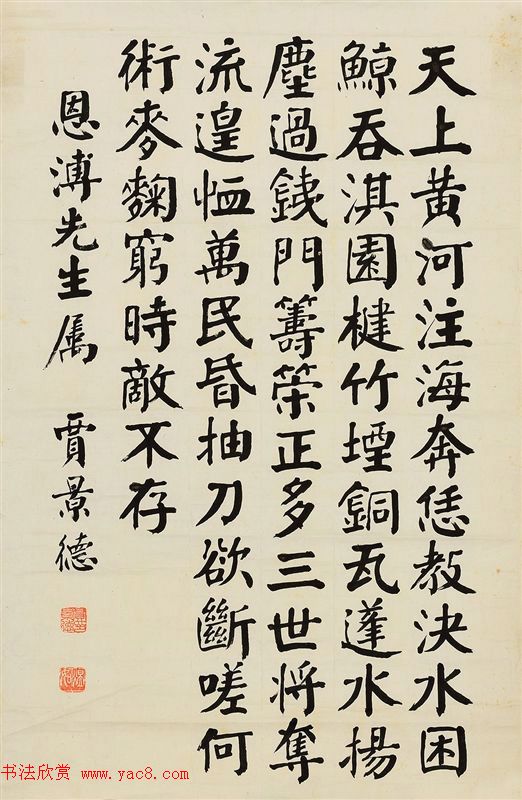 天上黄河注海奔恁教决水困
鯨吞淇園楗竹堙銅瓦蓬水揚
塵過銕門籌策正多三世將奪
流遑恤萬民昏抽刀欲斷嗟何
術麥麴窮時敵不存
恩溥先生属 賈景德
书法欣赏 www.yac8.com